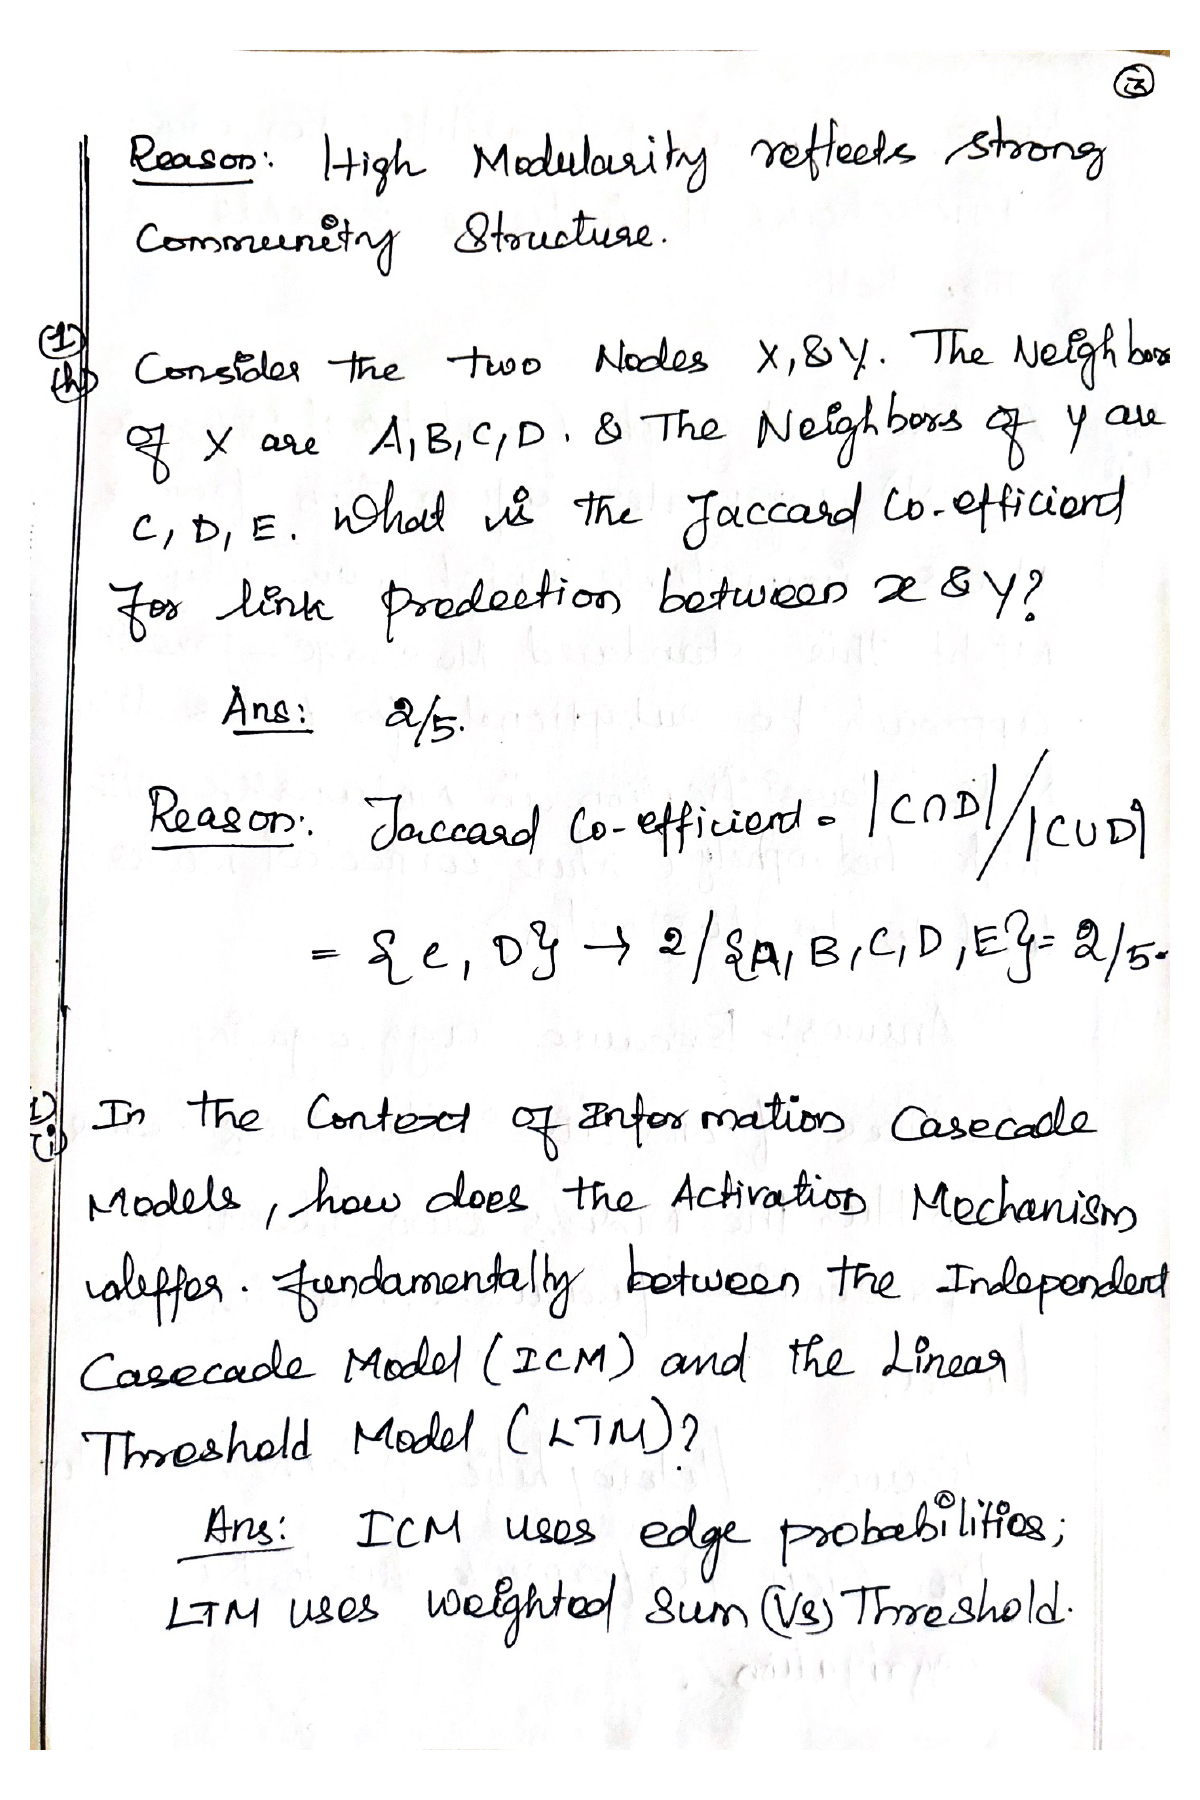 3
Reason: High Modularity reflects strong
Community Structure.
1
(h) Consider the two Nodes X, & Y. The Neighbors
of X are A, B, C, D. & The Neighbors of y are
C, D, E. What is the Jaccard Co-efficient
for link Prediction between x & y?
Ans: 2/5.
Reason: Jaccard Co-efficient = |C∩D| / |C∪D|
= {C, D} → 2/{A, B, C, D, E} = 2/5.
1) In the Context of Information Casecade
(i) Models, how does the Activation Mechanism
differ. fundamentally between the Independent
Casecade Model (ICM) and the Linear
Threshold Model (LTM)?
Ans: ICM uses edge probabilities;
LTM uses weighted Sum (Vs) Threshold.